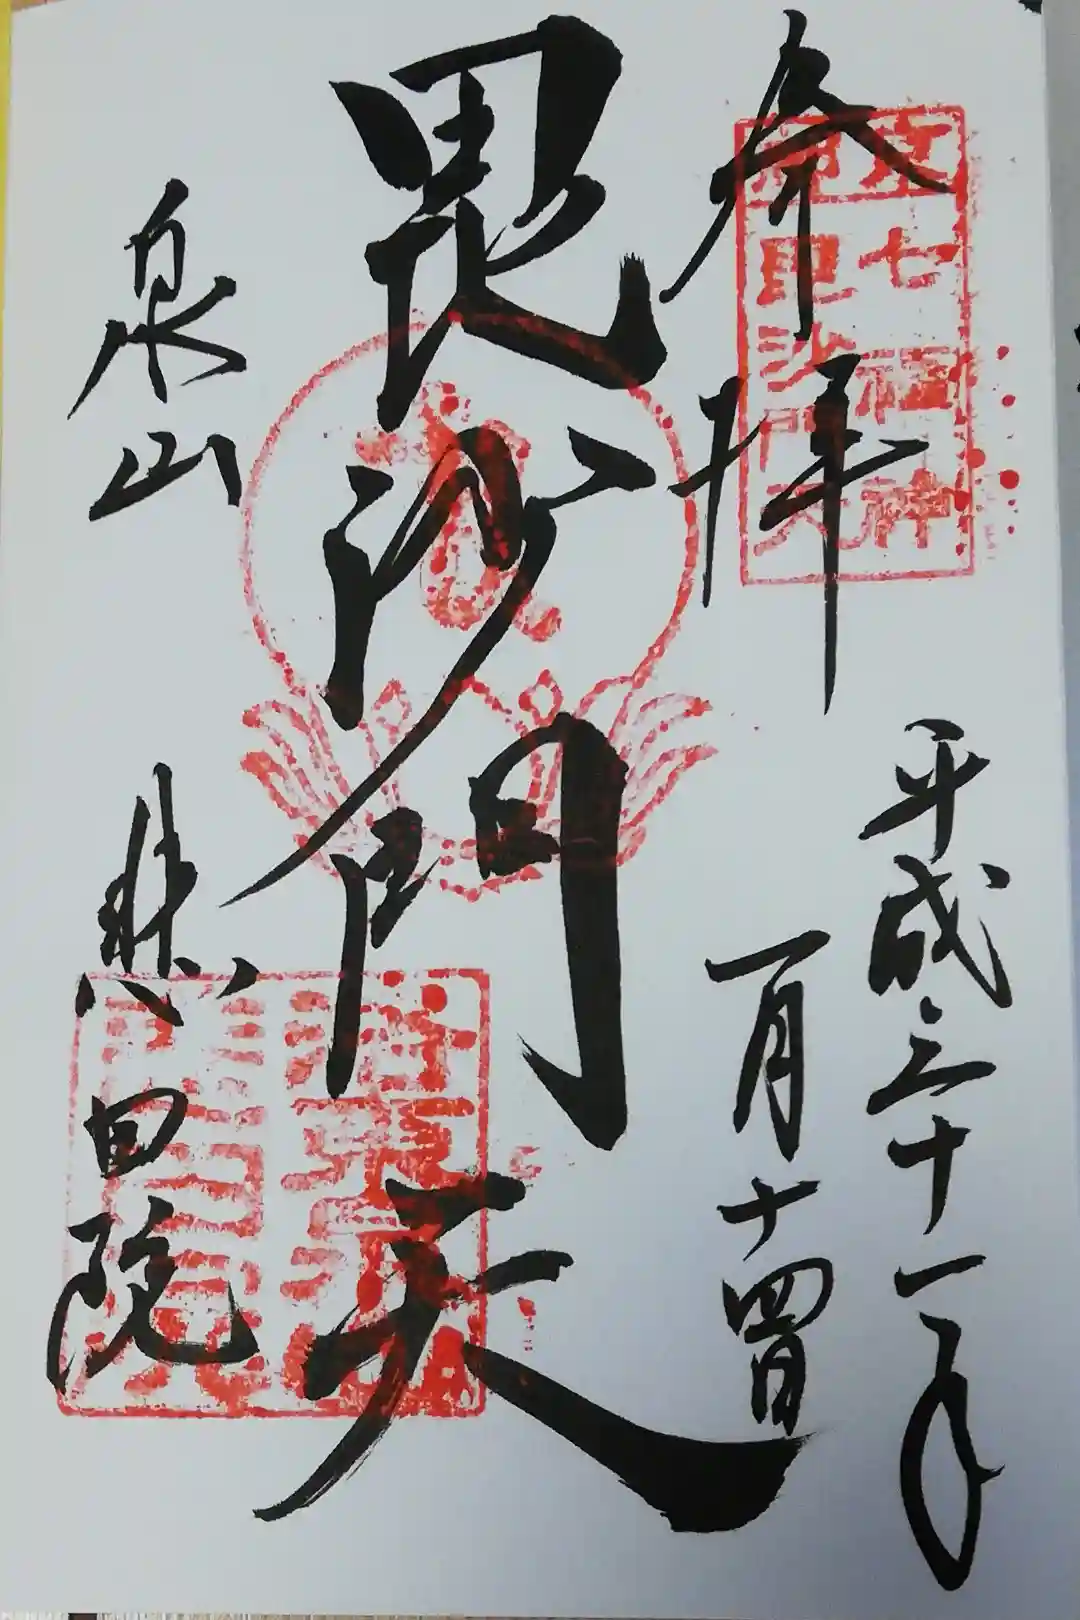 奉拝
平成三十一年
一月十四日
毘沙門天
泉山
悲田院
京七福神
毘沙門天